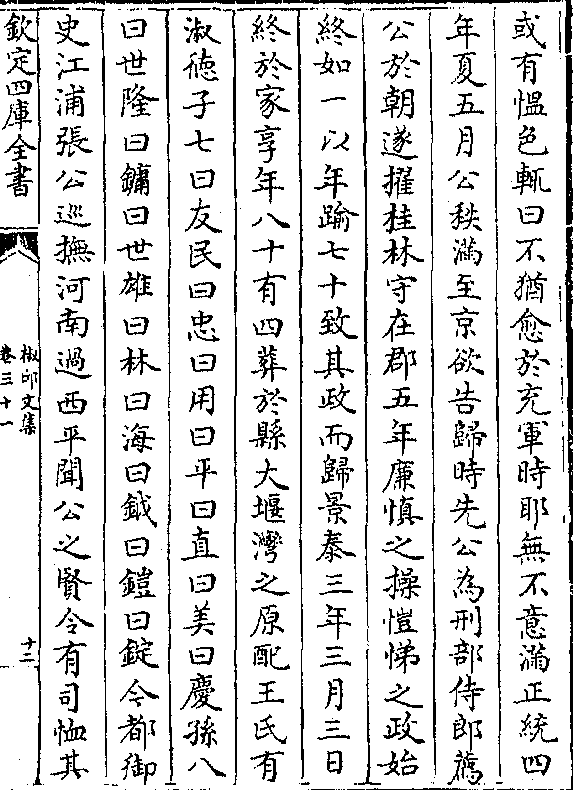 或有愠色輒曰不猶愈於充軍時耶無不意滿正統四
年夏五月公秩滿至京欲告歸時先公為刑部侍郎薦
公於朝遂擢桂林守在郡五年廉慎之操愷悌之政始
終如一以年踰七十致其政而歸景泰三年三月三日
終於家享年八十有四葬於縣大堰灣之原配王氏有
淑徳子七曰友民曰忠曰用曰平曰直曰美曰慶孫八
曰世隆曰鏞曰世雄曰林曰海曰鉞曰鎧曰錠今都御
史江浦張公巡撫河南過西平聞公之賢令有司恤其
欽定四庫全書
椒邱文集
卷三十一
十二